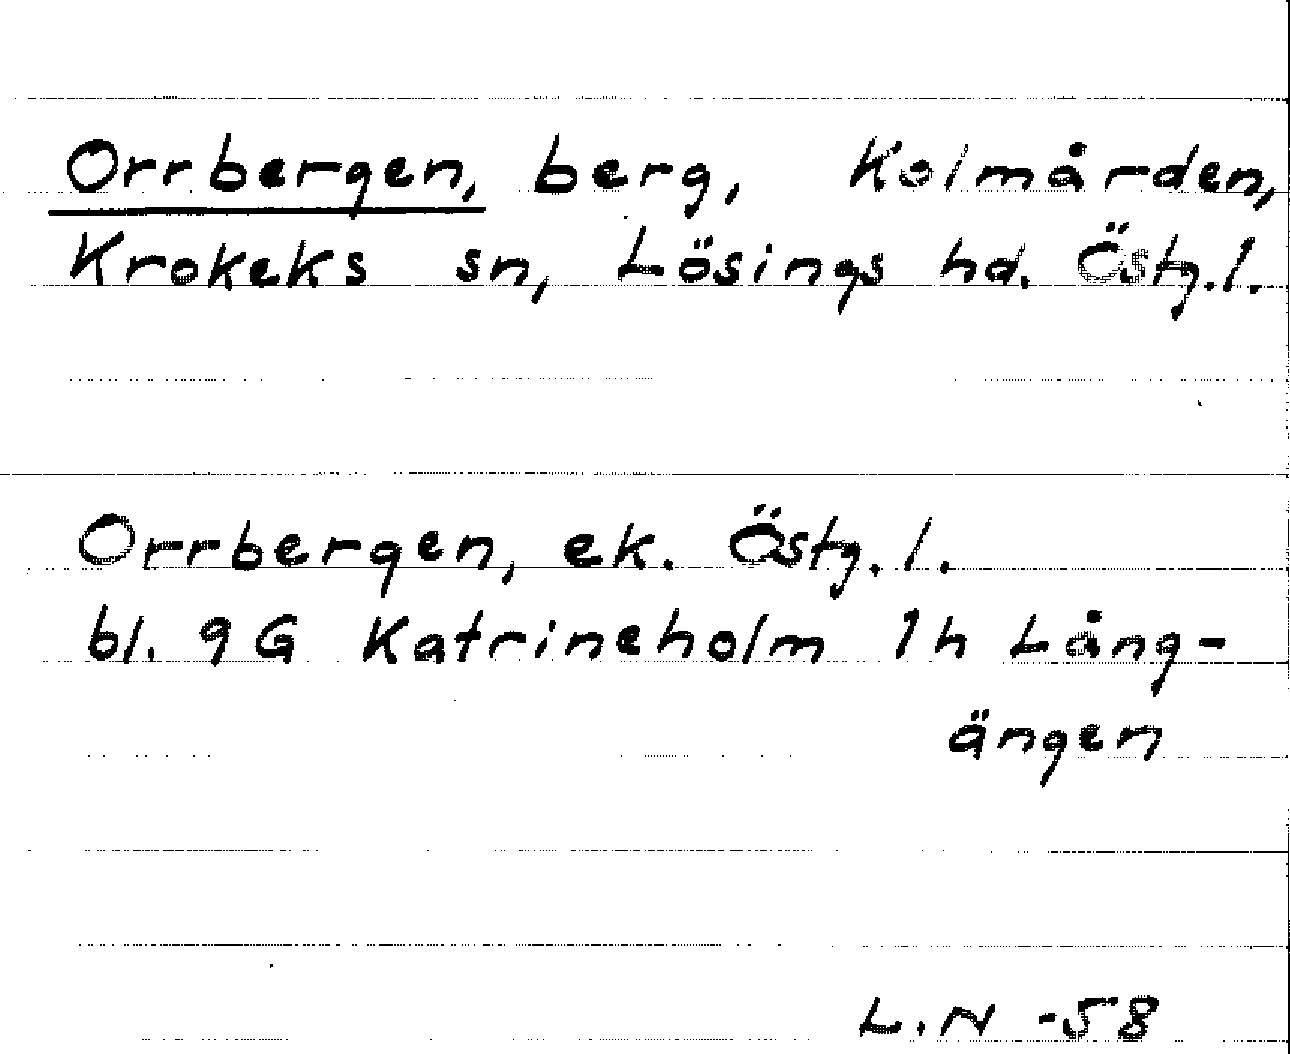 Orrbergen, berg, Kolmården,
Krokeks sn, Lösings hd. Östg.l.
Orrbergen, ek. Östg.l.
bl. 9G Katrineholm 1h Lång-
ängen
L.N -58